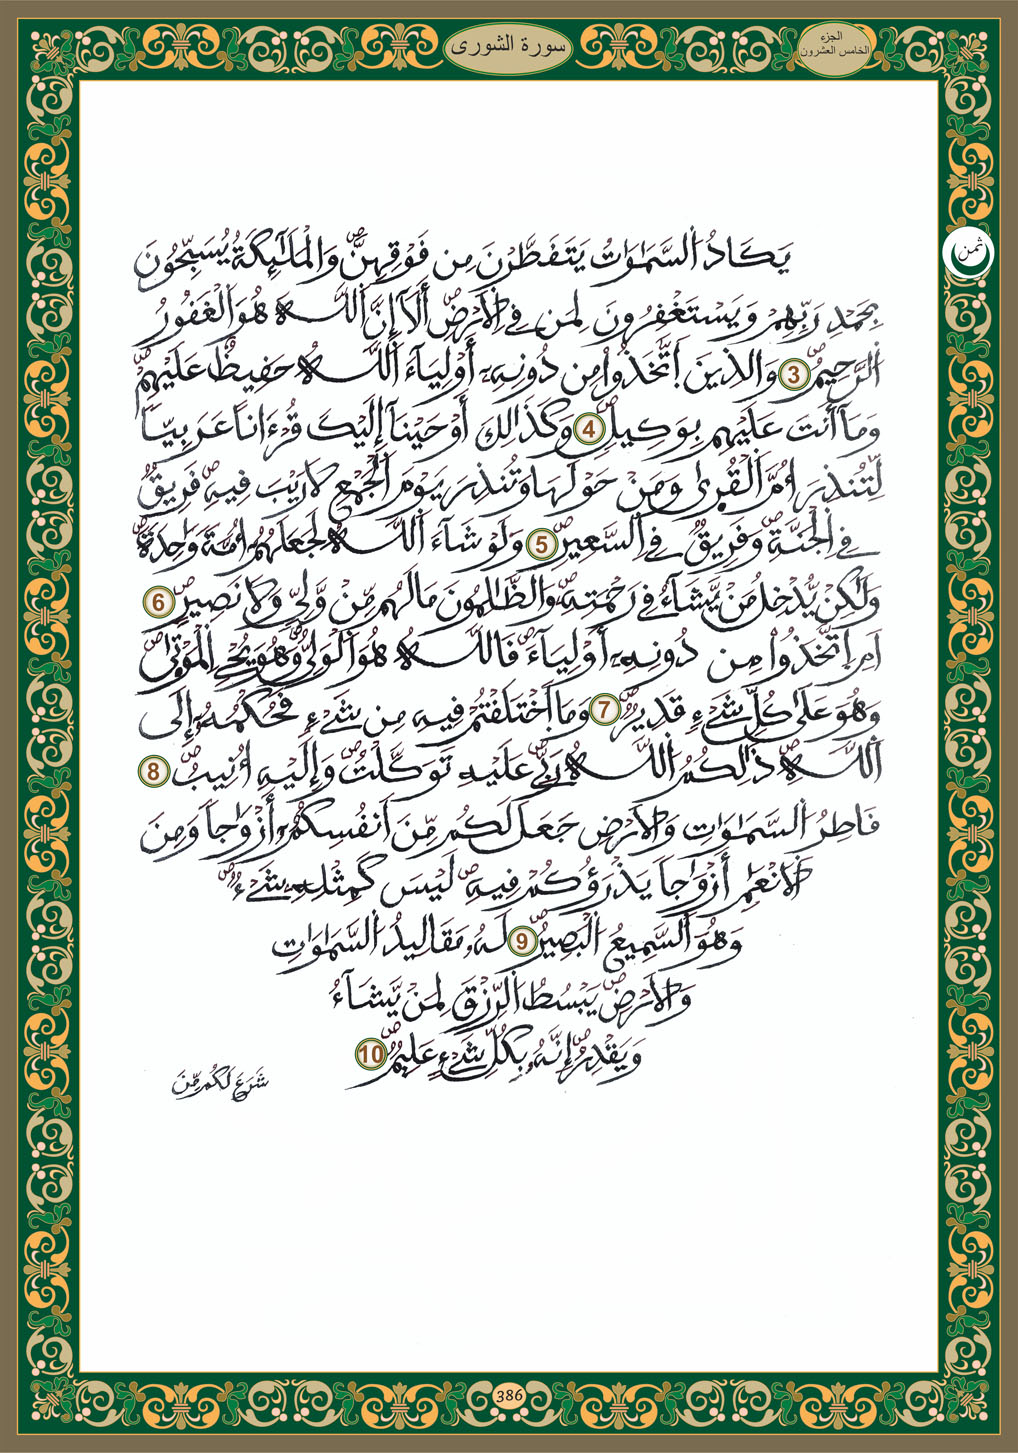 سورة الشورى
الجزء
الخامس العشرون
ثمن
يَكَادُ اُ۬لسَّمَٰوَٰتُ يَتَفَطَّرْنَ مِن فَوْقِهِنَّۖ وَالْمَلَٰٓئِكَةُ يُسَبِّحُونَ
بِحَمْدِ رَبِّهِمْ وَيَسْتَغْفِرُونَ لِمَن فِے اِ۬لَارْضِۖ أَلَآ إِنَّ اَ۬للَّهَ هُوَ اَ۬لْغَفُورُ
اُ۬لرَّحِيمُۖ 3 وَالذِينَ اَ۪تَّخَذُواْ مِن دُونِهِۦٓ أَوْلِيَآءَ اَ۬للَّهُ حَفِيظٌ عَلَيْهِمْۖ
وَمَآ أَنتَ عَلَيْهِم بِوَكِيلٖۖ 4 وَكَذَٰلِكَ أَوْحَيْنَآ إِلَيْكَ قُرْءَاناً عَرَبِيّاٗ
لِّتُنذِرَ أُمَّ اَ۬لْقُر۪ىٰ وَمَنْ حَوْلَهَا وَتُنذِرَ يَوْمَ اَ۬لْجَمْعِ لَا رَيْبَ فِيهِۖ فَرِيقٞ
فِے اِ۬لْجَنَّةِۖ وَفَرِيقٞ فِے اِ۬لسَّعِيرِۖ 5 وَلَوْ شَآءَ اَ۬للَّهُ لَجَعَلَهُمُۥٓ أُمَّةٗ وَٰحِدَةٗۖ
وَلَٰكِنْ يُّدْخِلُ مَنْ يَّشَآءُ فِے رَحْمَتِهِۦۖ وَالظَّٰلِمُونَ مَا لَهُم مِّنْ وَّلِيّٖ وَلَا نَصِيرٍۖ 6
اَمِ اِ۪تَّخَذُواْ مِن دُونِهِۦٓ أَوْلِيَآءَۖ فَاللَّهُ هُوَ اَ۬لْوَلِيُّۖ وَهُوَ يُحْيِ اِ۬لْمَوْت۪ىٰۖ
وَهُوَ عَلَىٰ كُلِّ شَےْءٖ قَدِيرٞۖ 7 وَمَا اَ۪خْتَلَفْتُمْ فِيهِ مِن شَےْءٖ فَحُكْمُهُۥٓ إِلَى
اَ۬للَّهِۖ ذَٰلِكُمُ اُ۬للَّهُ رَبِّے عَلَيْهِ تَوَكَّلْتُۖ وَإِلَيْهِ أُنِيبُۖ 8
فَاطِرُ اُ۬لسَّمَٰوَٰتِ وَالَارْضِ جَعَلَ لَكُم مِّنَ اَنفُسِكُمُۥٓ أَزْوَٰجاٗ وَمِنَ
اَ۬لَانْعَٰمِ أَزْوَٰجاٗ يَذْرَؤُكُمْ فِيهِۖ لَيْسَ كَمِثْلِهِۦ شَےْءٞۖ
وَهُوَ اَ۬لسَّمِيعُ اُ۬لْبَصِيرُۖ 9 لَهُۥ مَقَالِيدُ اُ۬لسَّمَٰوَٰتِ
وَالَارْضِۖ يَبْسُطُ اُ۬لرِّزْقَ لِمَنْ يَّشَآءُ
وَيَقْدِرُۖ إِنَّهُۥ بِكُلِّ شَےْءٍ عَلِيمٞۖ 10
شَرَعَ لَكُم مِّنَ
386